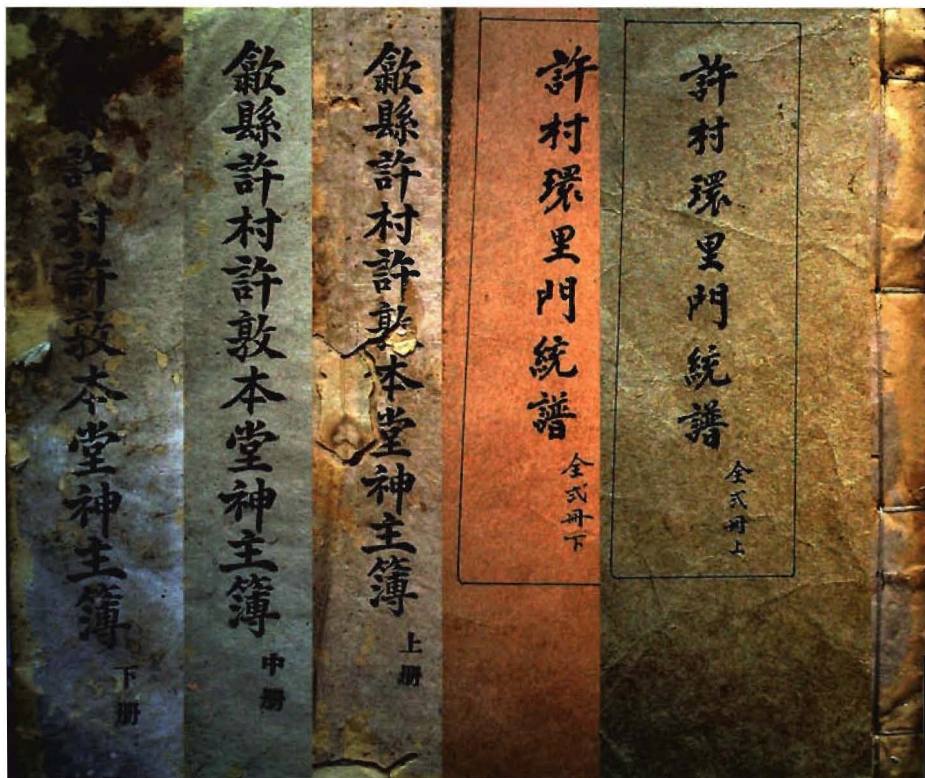 許村環里門統譜
全弍冊上
許村環里門統譜
全弍冊下
歙縣許村許敦本堂神主簿
上册
歙縣許村許敦本堂神主簿
中册
縣許村許敦本堂神主簿
下册